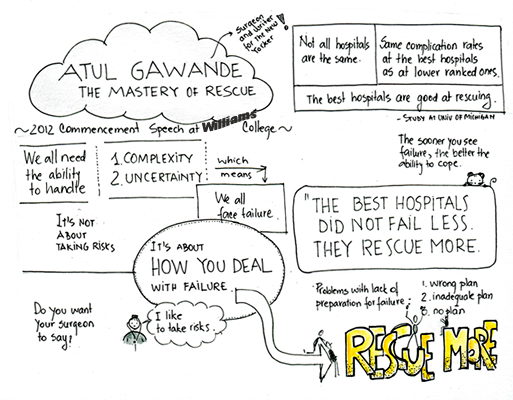 ATUL GAWANDE
THE MASTERY OF RESCUE
Surgeon
and writer
for the New
Yorker
~2012 Commencement Speech at Williams College~
Not all hospitals
are the same.
Same complication rates
at the best hospitals
as at lower ranked ones.
The best hospitals are good at rescuing.
- STUDY AT UNIV OF MICHIGAN
We all need
the ability
to handle
1. COMPLEXITY
2. UNCERTAINTY
which
means
We all
face failure.
The sooner you see
failure, the better the
ability to cope.
"THE BEST HOSPITALS
DID NOT FAIL LESS.
THEY RESCUE MORE.
IT'S NOT
ABOUT
TAKING RISKS
IT'S ABOUT
HOW YOU DEAL
WITH FAILURE.
Do you want
your surgeon
to say?
I like
to take risks.
Problems with lack of
preparation for failure:
1. wrong plan
2. inadequate plan
3. no plan
RESCUE MORE